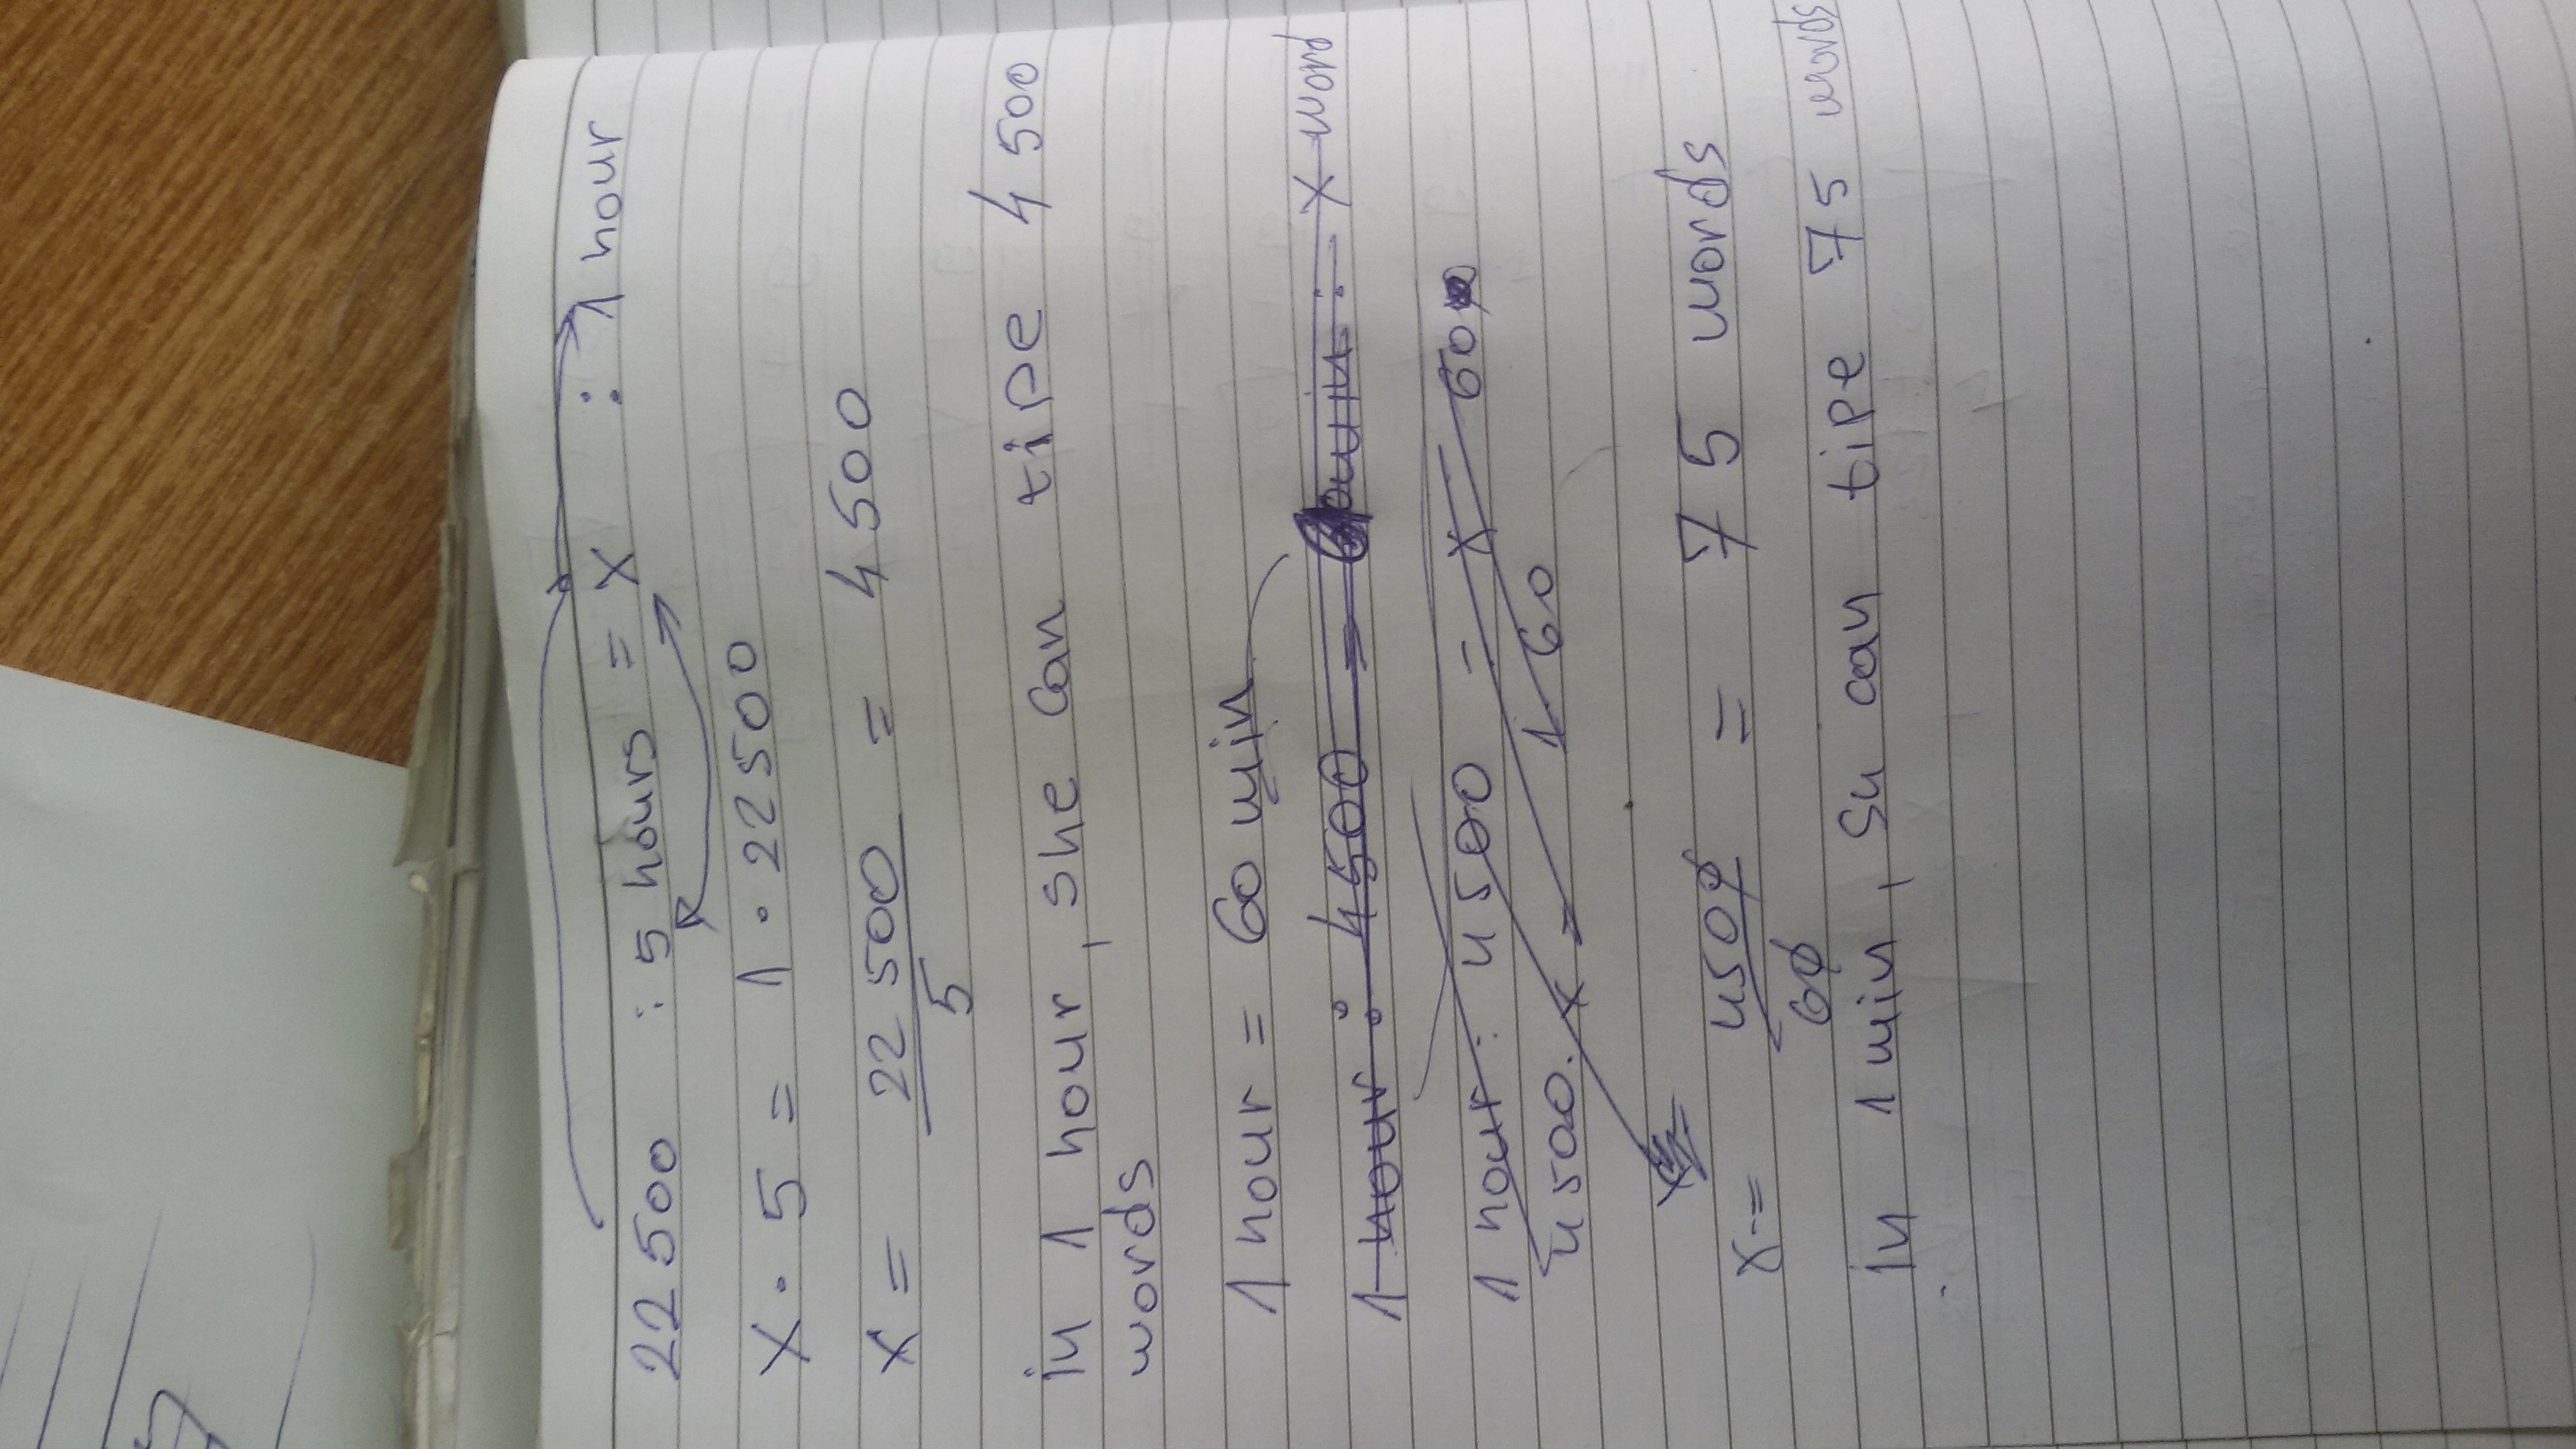 22 500 : 5 hours = X : 1 hour
X · 5 = 1 · 22500
X = 22 500 / 5 = 4 500
in 1 hour, she can tipe 4 500
words
1 hour = 60 min
1 hour : 4500 = min : X word
1 hour : 4500 = X = 60
4500 · X 1 60
X = 4500 / 60 = 75 words
in 1 min, su can tipe 75 words